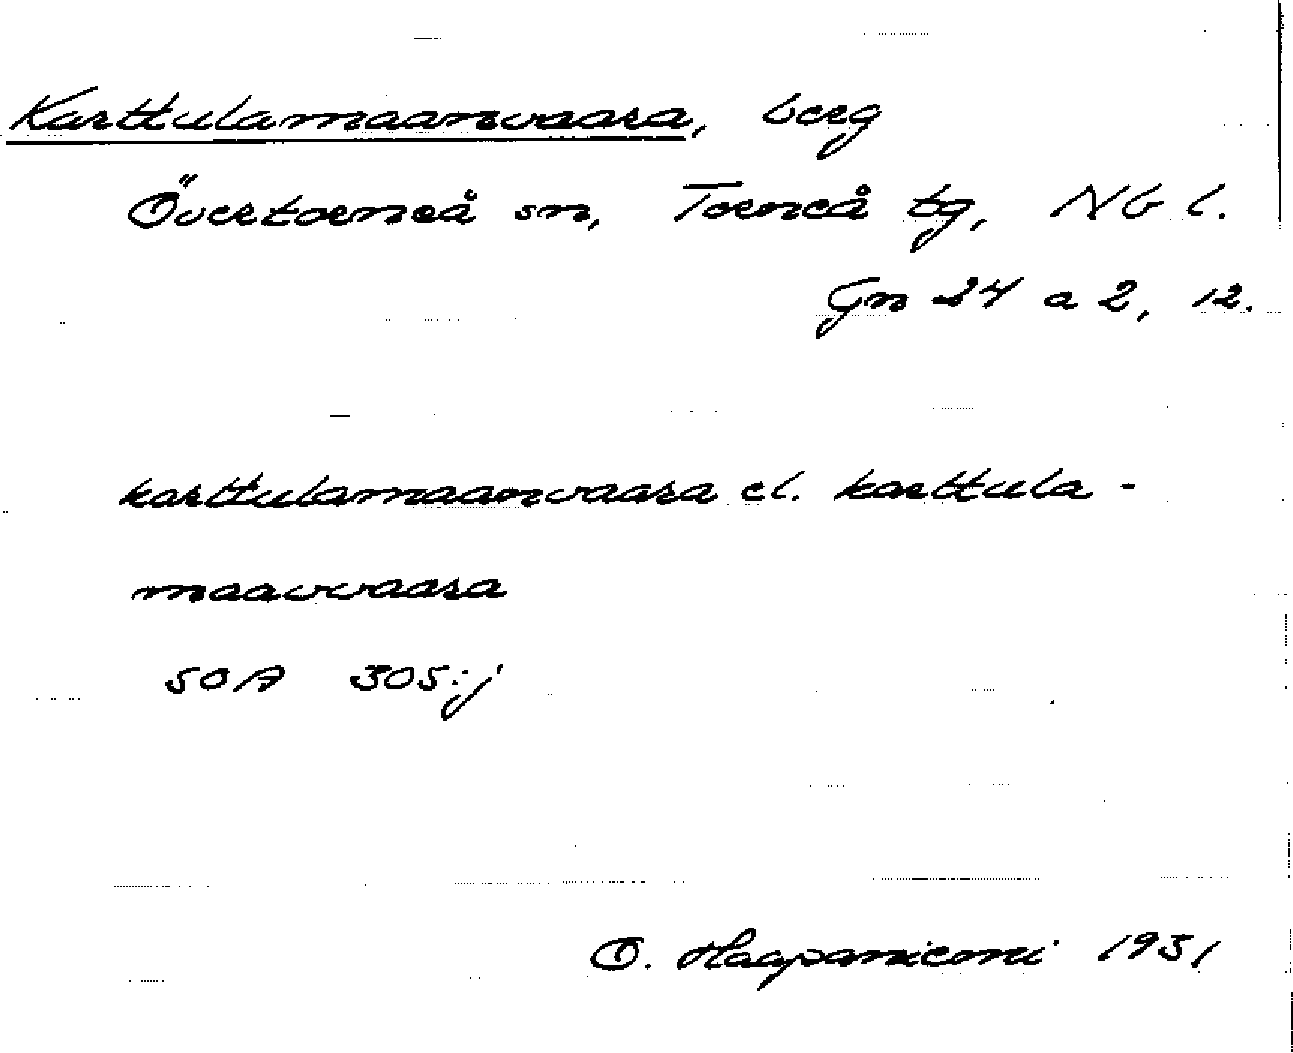 Karttulamaanvaara, berg
Övertorneå sn, Torneå tg, NB l.
Gn 24 a 2, 12.
karttulamaanvaara el. karttula-
maavvaara
SOA 305:j
O. Haapaniemi 1931